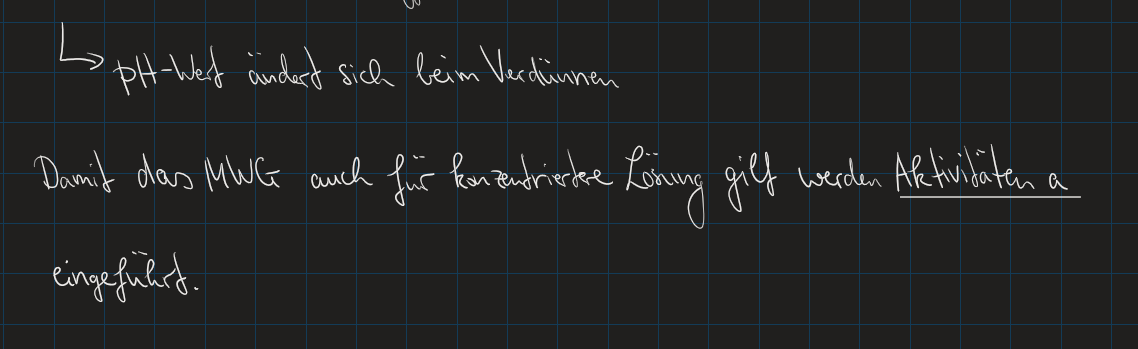 pH-Wert ändert sich beim Verdünnen
Damit das MWG auch für konzentriertere Lösung gilt werden Aktivitäten a
eingeführt.